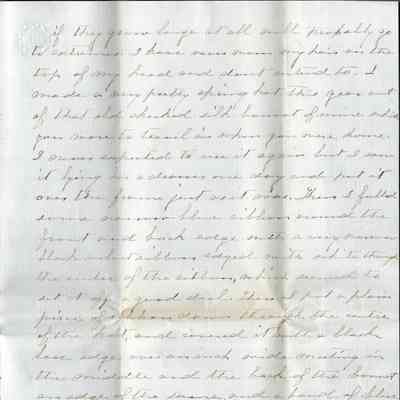 if they grow large at all will probably go
to extremes. I have never worn my hair on the
top of my head and don't intend to. I
made a very pretty spring hat this year out
of that old checked silk bonnet of mine which
you wore to travel in when you were home.
I never expected to use it again but I saw
it lying in a drawer one day and put it
over the frame just as it was. Then I fulled
some narrow blue ribbon around the
front and back edge with a very narrow
black velvet ribbon edged with white through
the center of the ribbon, which seemed to
set it up a good deal. Then I put a plain
piece of ribbon down through the centre
of the hat, and covered it with a black
lace edge over an inch wide meeting in
the middle and the back of the bonnet
an edge of the same, and a of blue